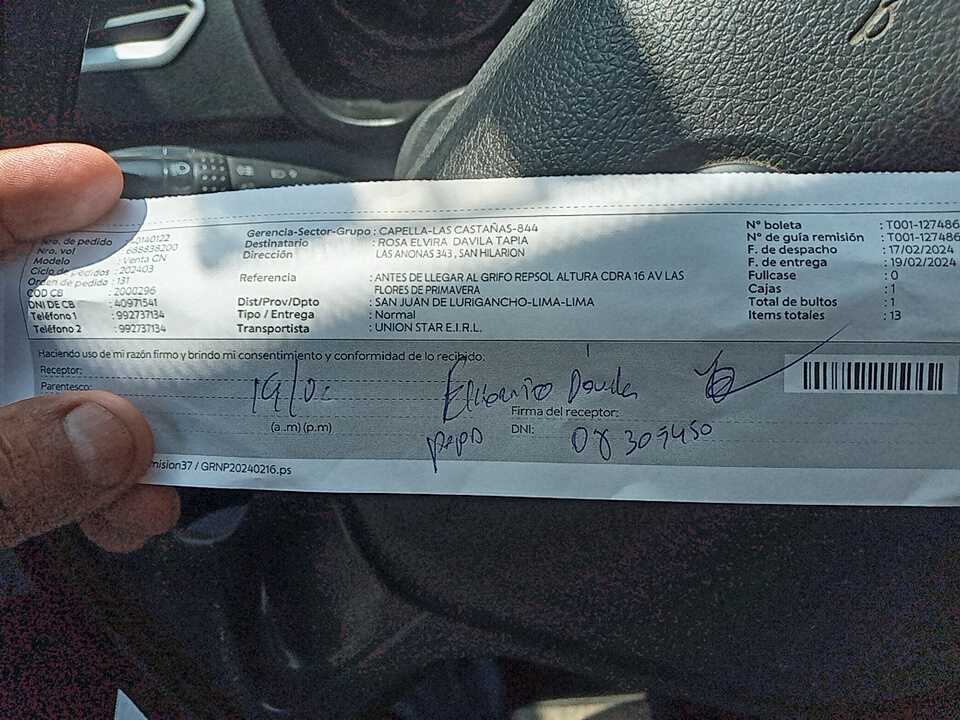 Nro. de pedido
Nro. vol : 688838200
Modelo : Venta CN
Ciclo de pedidos : 202403
Orden de pedido : 131
COD CB : 2000296
DNI DE CB : 40971541
Teléfono 1 : 992737134
Teléfono 2 : 992737134
Gerencia-Sector-Grupo : CAPELLA-LAS CASTAÑAS-844
Destinatario : ROSA ELVIRA DAVILA TAPIA
Dirección LAS ANONAS 343 , SAN HILARION
Referencia : ANTES DE LLEGAR AL GRIFO REPSOL ALTURA CDRA 16 AV LAS
FLORES DE PRIMAVERA
Dist/Prov/Dpto : SAN JUAN DE LURIGANCHO-LIMA-LIMA
Tipo / Entrega : Normal
Transportista : UNION STAR E.I.R.L.
N° boleta : T001-127486
N° de guía remisión : T001-127486
F. de despacho : 17/02/2024
F. de entrega : 19/02/2024
Fullcase : 0
Cajas : 1
Total de bultos : 1
Items totales : 13
Haciendo uso de mi razón firmo y brindo mi consentimiento y conformidad de lo recibido:
Receptor:
Parentesco:
19/02
(a.m)(p.m)
Dávila
Firma del receptor:
papa
DNI:
mision37 / GRNP20240216.ps